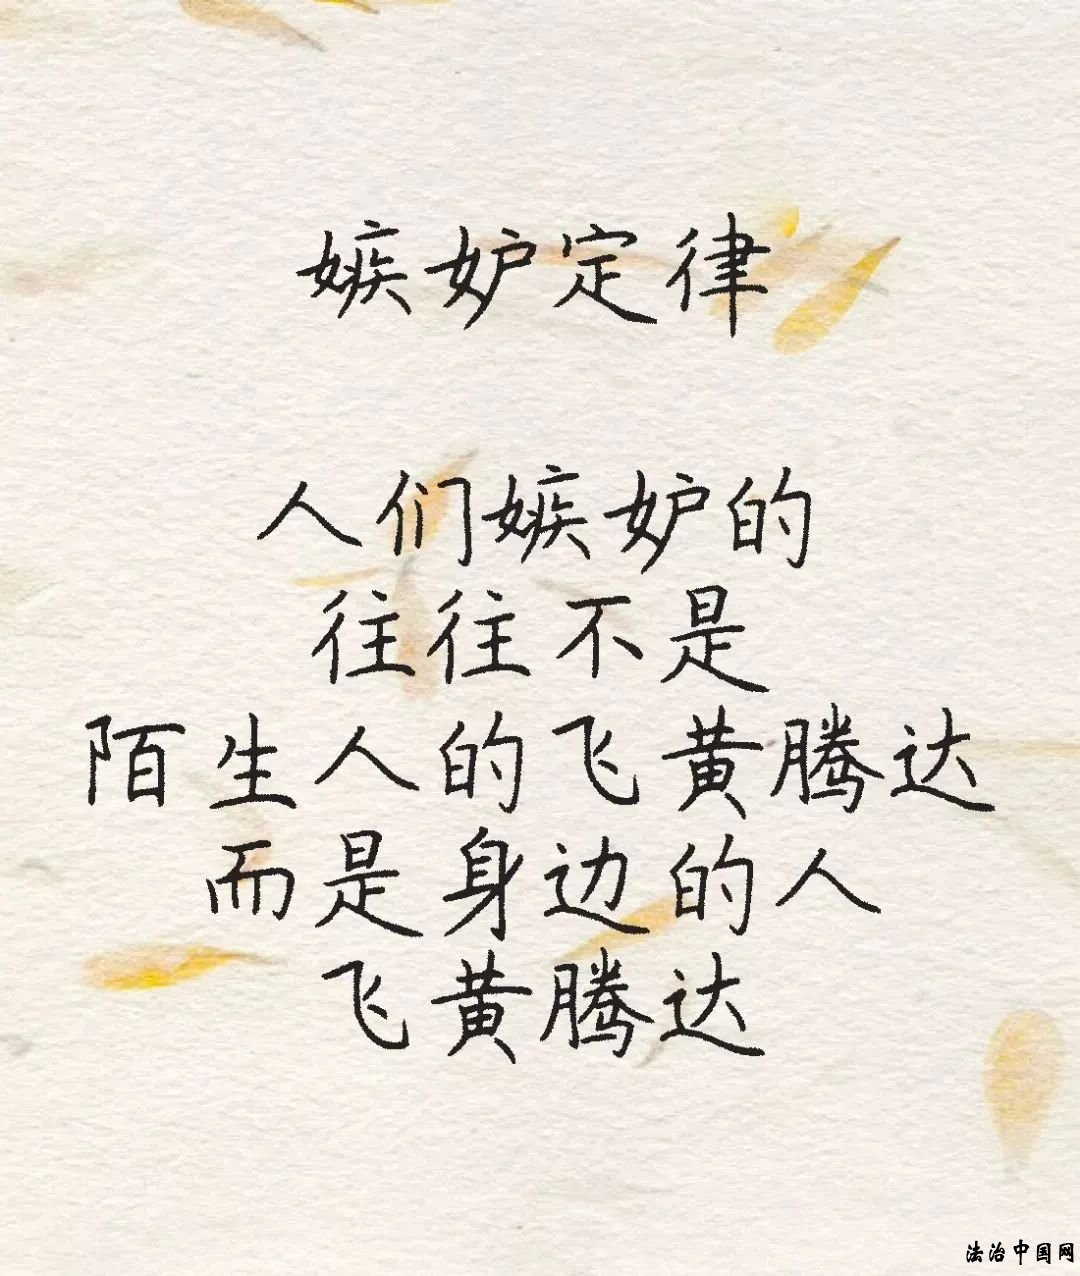 嫉妒定律
人们嫉妒的
往往不是
陌生人的飞黄腾达
而是身边的人
飞黄腾达
法治中国网